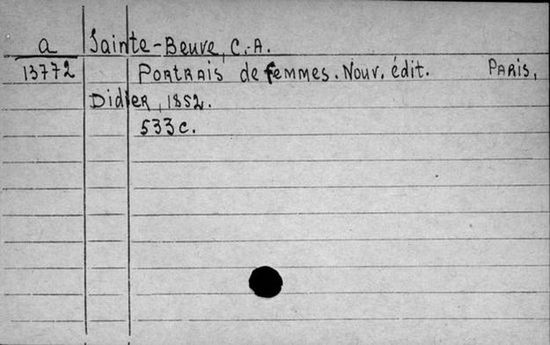 a Sainte-Beuve, C.-A.
13772 Portrais de femmes. Nouv. édit. Paris,
Didier, 1852.
533 c.